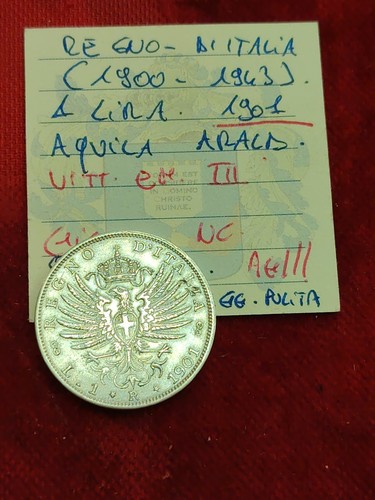 REGNO - D'ITALIA
(1900 - 1943).
1 LIRA. 1901
AQUILA ARALD.
VITT. EM. III
NC.
AG///
GG. PULITA
REGNO D'ITALIA
L. 1 R 1901